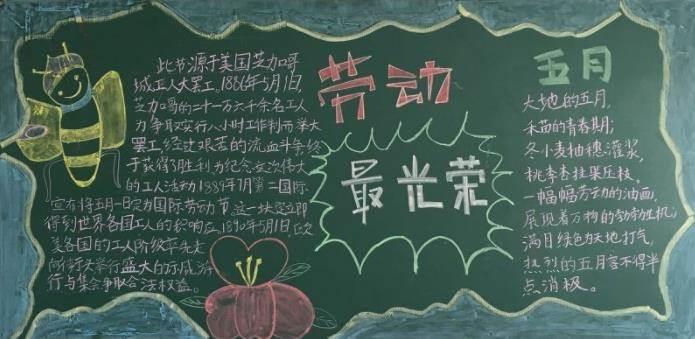 此书源于美国芝加哥
城工人大罢工。1886年5月1日,
芝加哥的二十一万六千余名工人
为争取实行八小时工作制而举大
罢工,经过艰苦的流血斗争,终
于获得了胜利。为纪念这次伟大
的工人活动,1889年7月第二国际
宣布将五月一日定为国际劳动节。这一决定立即
得到世界各国工人的积响应,1890年5月1日,欧
美各国的工人阶级率先走
向街头举行盛大的示威游
行与集会争取合法权益。
劳动
最光荣
五月
大地的五月,
禾苗的青春期;
冬小麦抽穗灌浆,
桃李杏挂果压枝。
一幅幅劳动的油画,
展现着万物的勃勃生机;
满目绿色为天地打气,
热烈的五月容不得半
点消极。